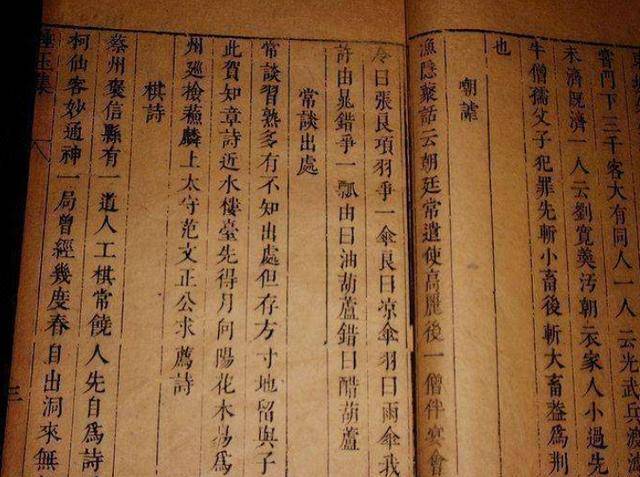 門下三千客大有同人一人云光武兵渡
未濟既濟一人云劉寬羹汚朝衣家人小過先
牛僧孺父子犯罪先斬小畜後斬大畜葢為荆
也
嘲謔
漁隱叢話云朝廷常遣使高麗後一僧伴宴會
令曰張良項羽爭一傘良曰凉傘羽曰雨傘我
許由晁錯爭一瓢由曰油葫蘆錯曰醋葫蘆
常談出處
常談習熟多有不知出處但存方寸地留與子
此賀知章詩近水樓臺先得月向陽花木易爲
州廵撿蘇麟上太守范文正公求薦詩
棋詩
蔡州褒信縣有一道人工棋常饒人先自爲詩
柯仙客妙通神一局曾經幾度春自出洞來無
玉集 八 三